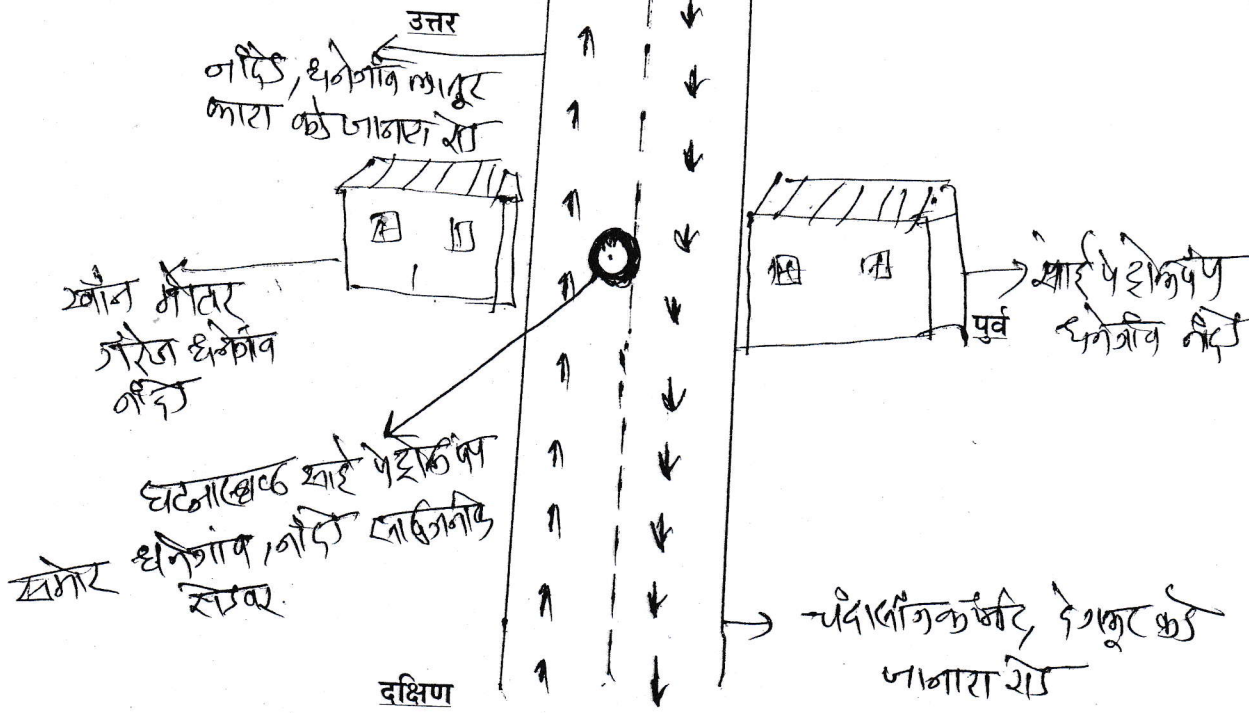 उत्तर
नांदेड, धनेगाँव लातूर
कडे जाणारा रोड
खाँन मोटार
गॅरेज धनेगाव
नांदेड
साई पेट्रोलपंप
धनेगाँव नांदेड
पुर्व
घटनास्थळ साई पेट्रोल पंप
समोर धनेगांव, नांदेड सार्वजनीक
रोडवर.
देगलूर कडे
जाणारा रोड
दक्षिण